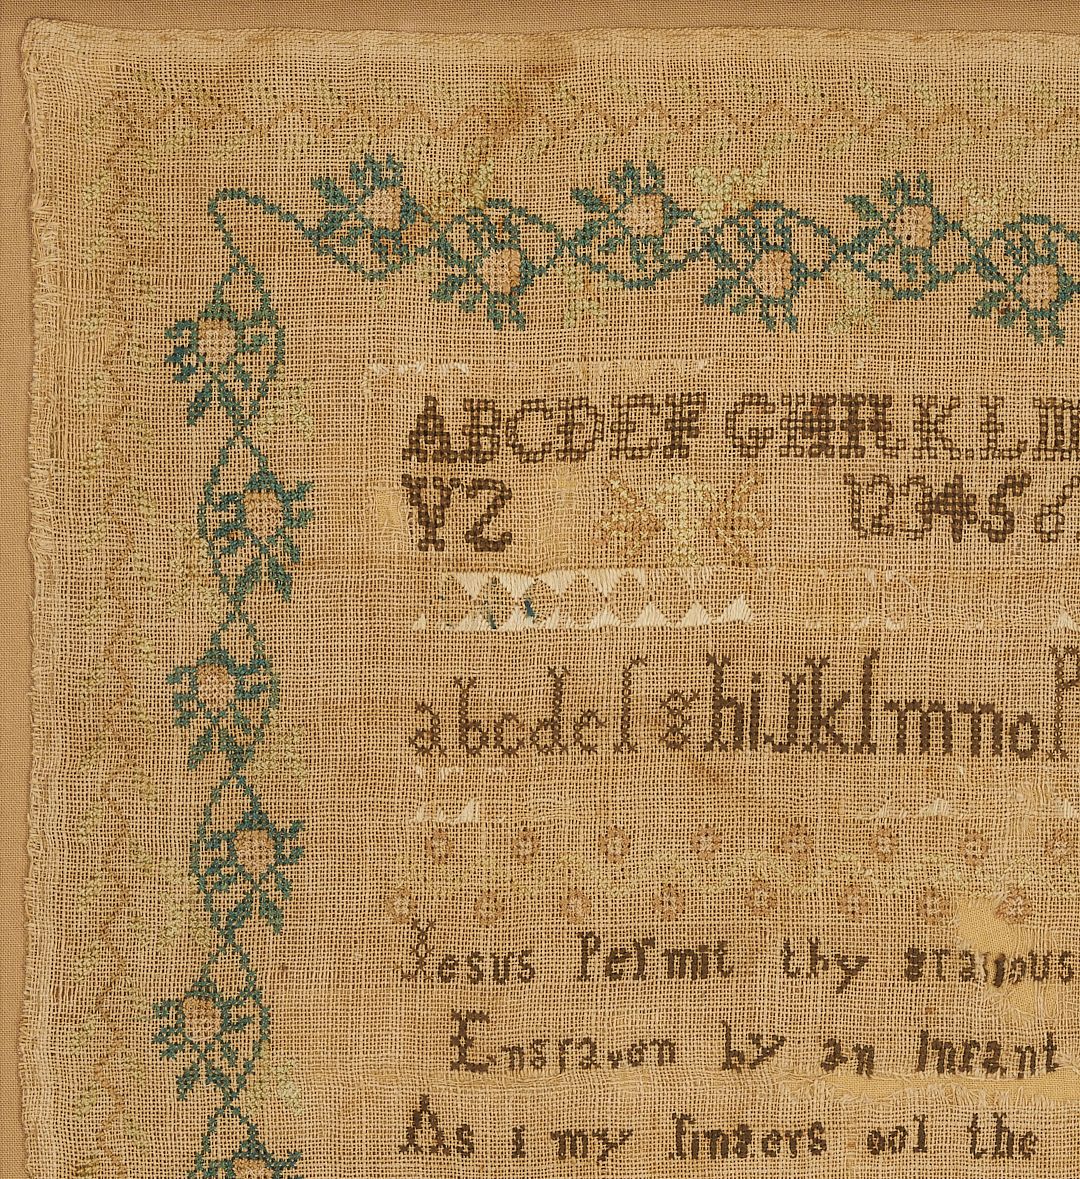 ABCDEFGHIKLM
YZ 123456
abcdef ghijklmnop
Jesus Permit thy gracious
Engraven by an Infant
As i my fingers
the